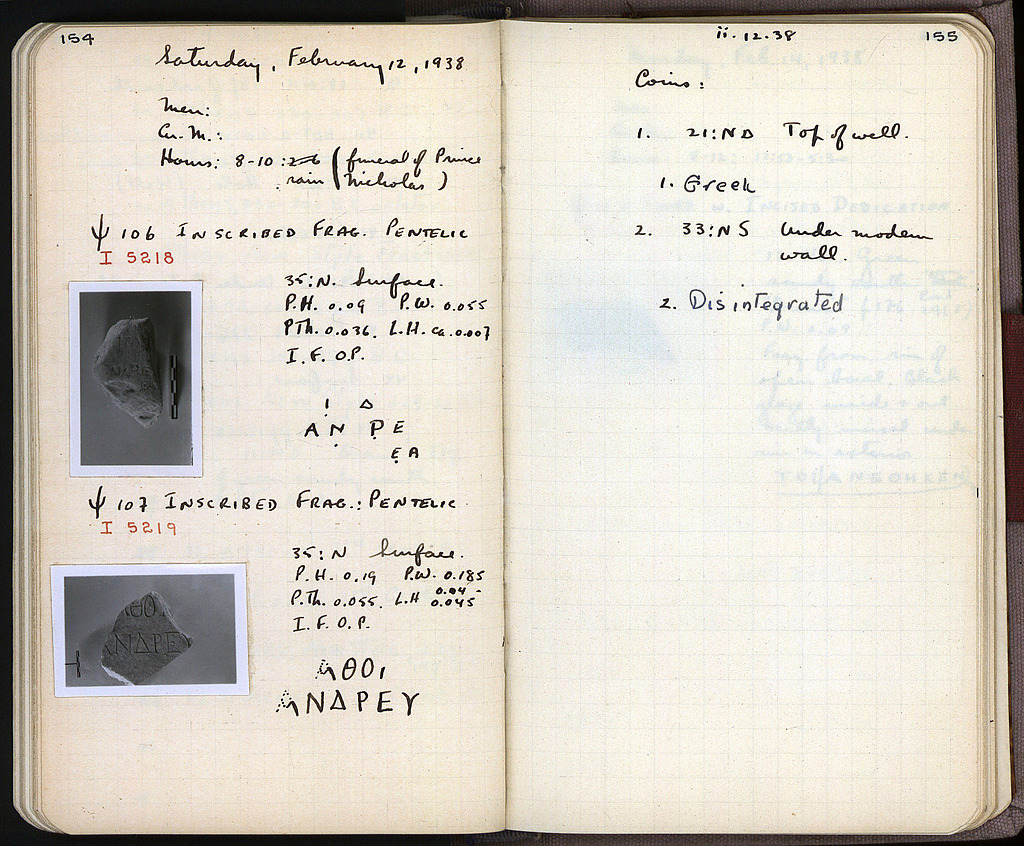 154
Saturday, February 12, 1938
Men:
Gr. M.:
Hours: 8-10 : 2-6 (funeral of Prince
rain Nicholas)
ψ 106 INSCRIBED FRAG. PENTELIC
I 5218
35:N. Surface.
P.H. 0.09 P.W. 0.055
P.Th. 0.036. L.H. ca. 0.007
I. F. O.P.
Ι Δ
Α Ν Ρ Ε
Ε Α
ψ 107 INSCRIBED FRAG.: PENTELIC
I 5219
35:N Surface.
P.H. 0.19 P.W. 0.185
P.Th. 0.055. L.H 0.04-
0.045
I. F. O.P.
ΑΘΟΙ
ΑΝΔΡΕΥ
ΑΘΟ
ΑΝΔΡΕ
ii.12.38 155
Coins:
1. 21:ND Top of well.
1. Greek
2. 33:NS Under modern
wall.
2. Disintegrated